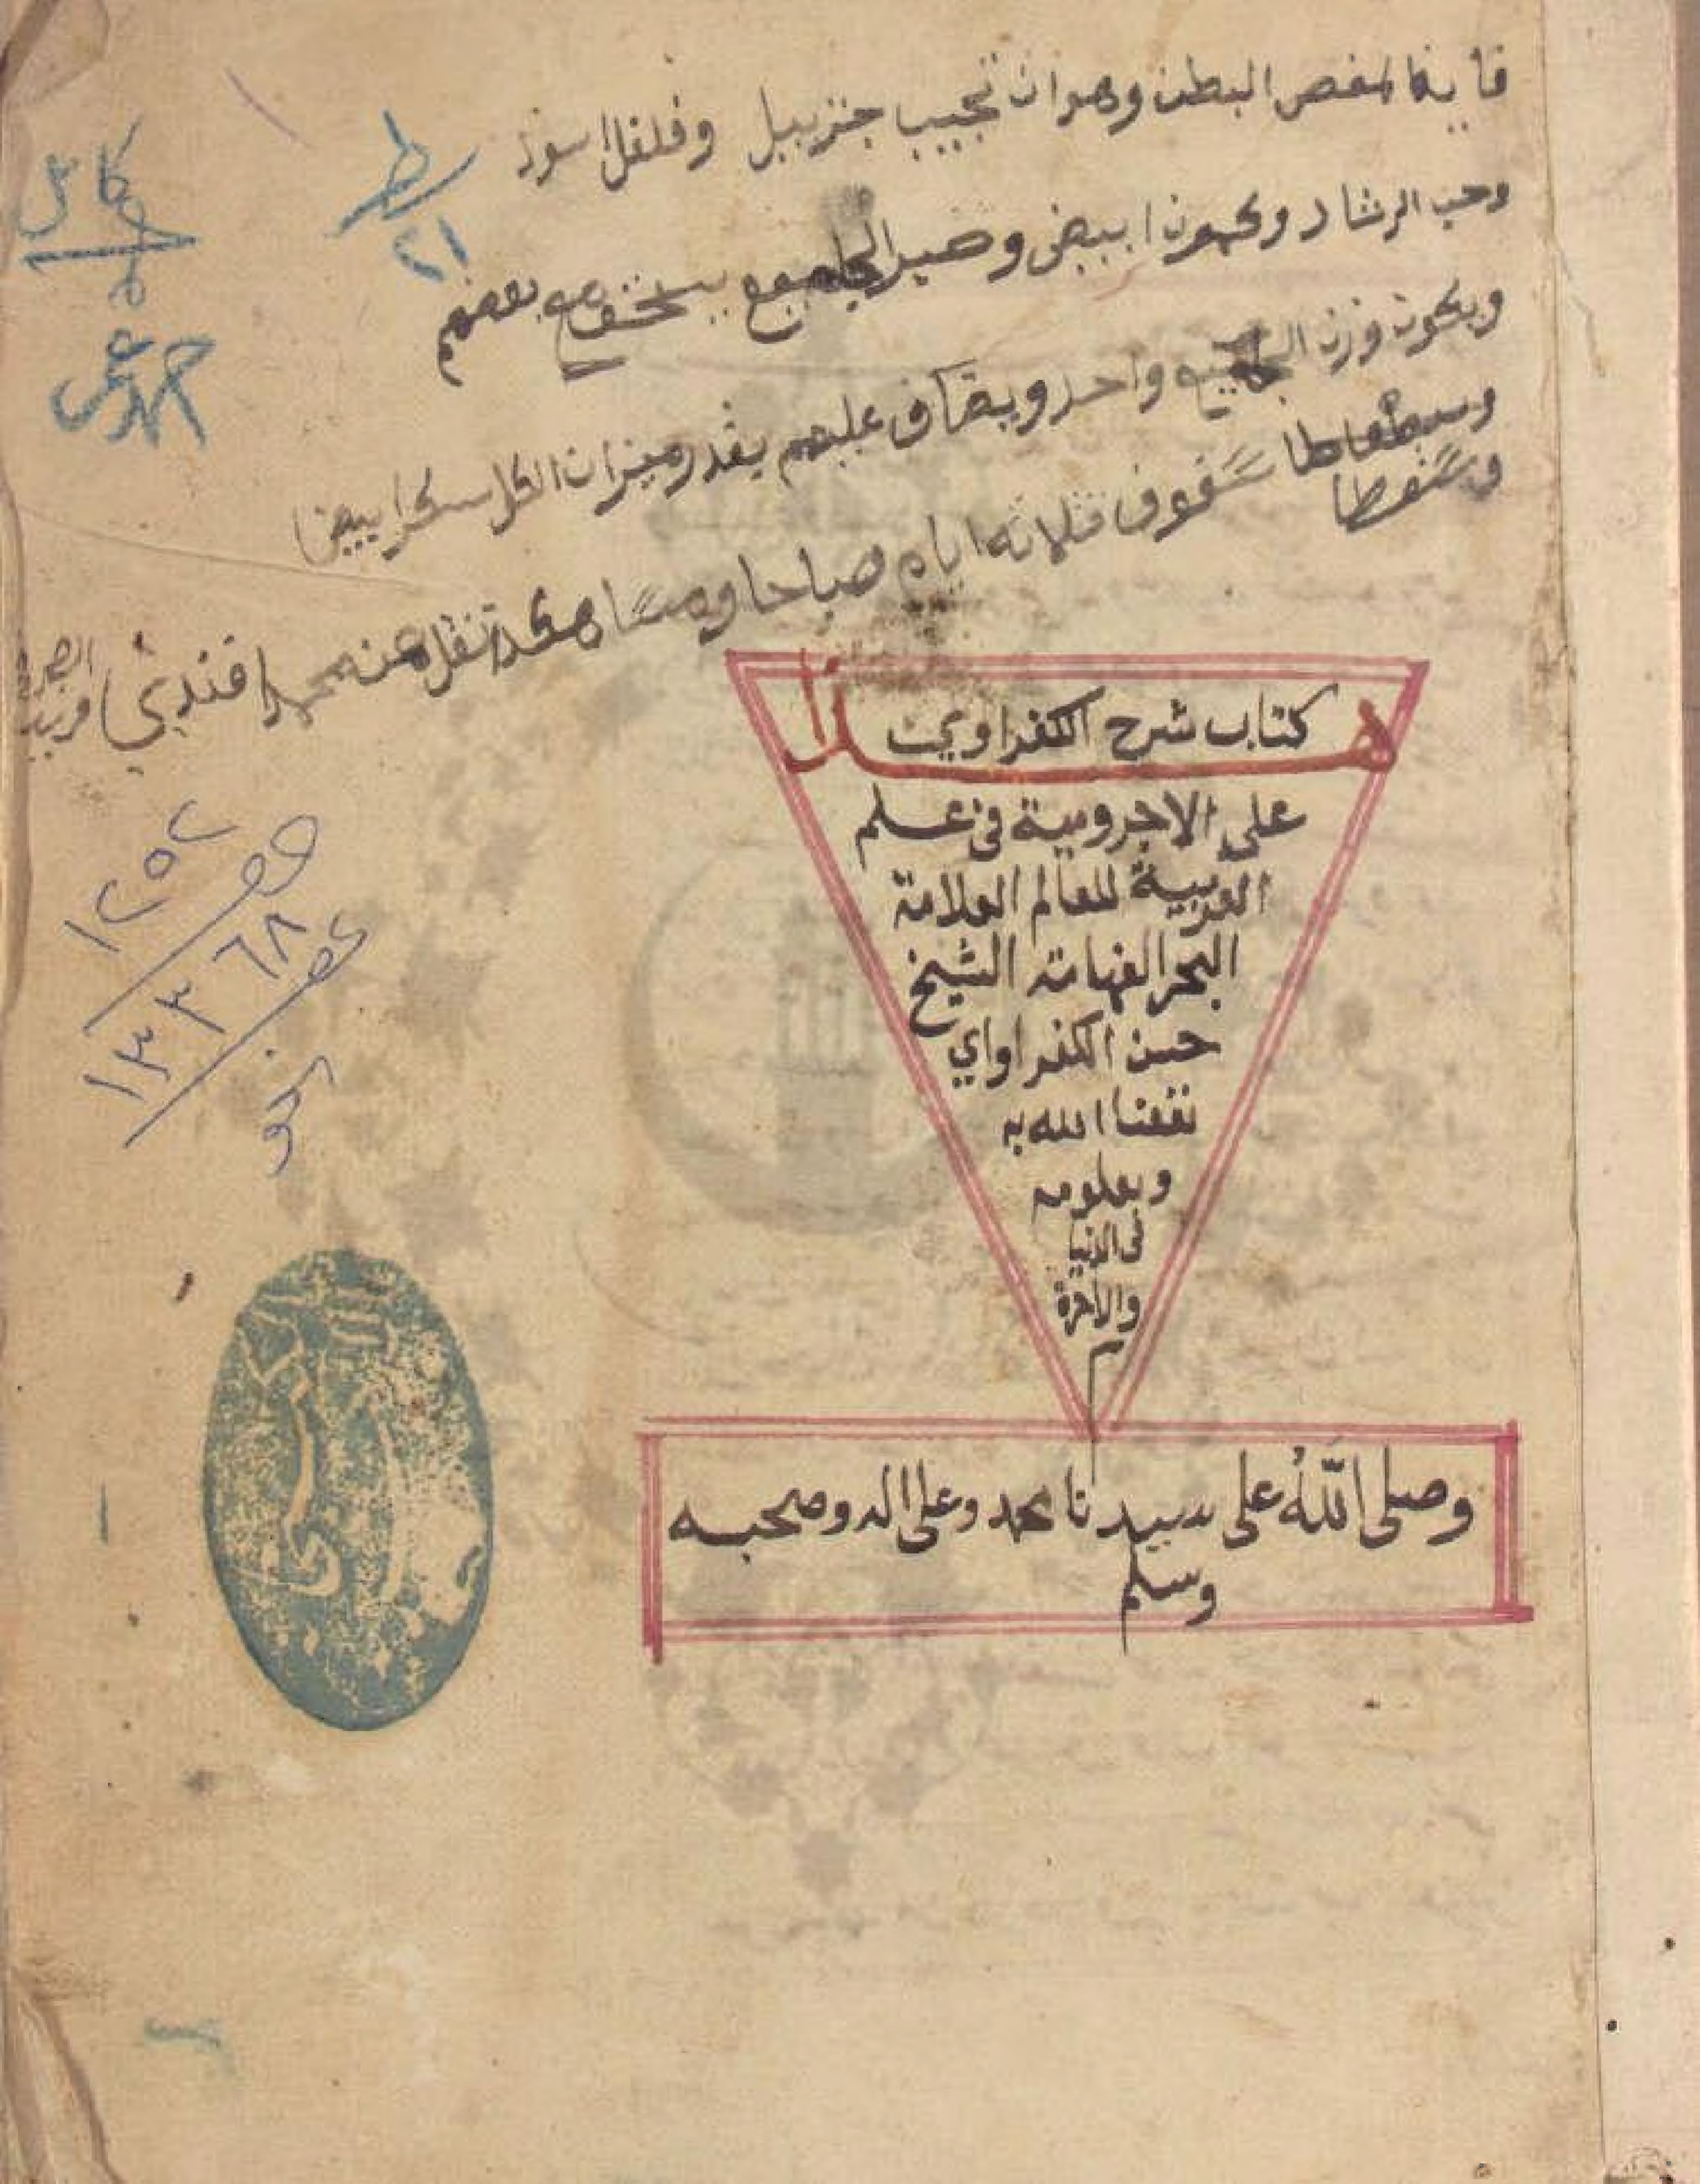 فايدة لمغص البطن وهو ان تجيب جنزبيل وفلفل اسود
وحب الرشاد وكمون ابيض وبعضهم
ويكون وزن واحد ويضاف عليهم بقدر ميزان الكل سكر ابيض
سفوف ثلاثة ايام صباحا ومسا نقل عنه محمد افندي
كامل
احمد عمر
٢١
هذا
كتاب شرح الكفراوي
على الاجرومية في علم
العربية للعالم العلامة
البحر الفهامة الشيخ
حسن الكفراواي
نفعنا الله به
وبعلومه
في الدنيا
والاخرة
م
وصلى الله على سيدنا محمد وعلى اله وصحبه
وسلم
١٢٥٢
١٣٣٦٨
نحو